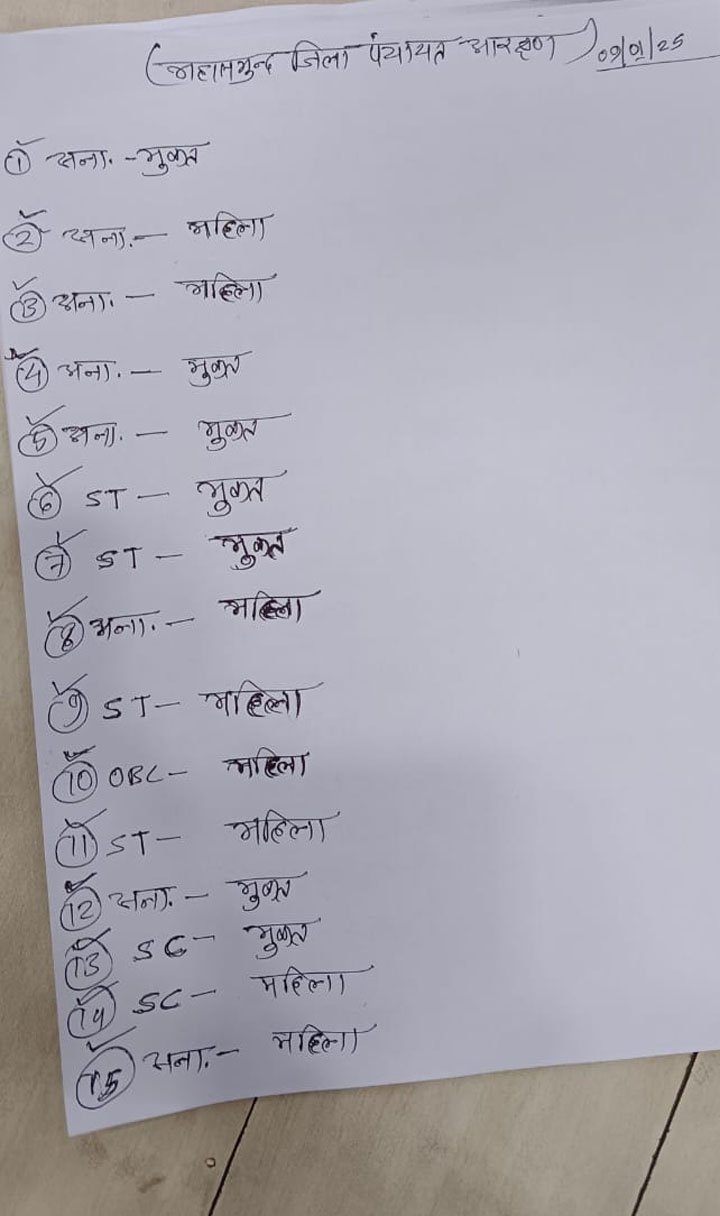 (महासमुन्द जिला पंचायत आरक्षण) 09/01/25
① अना. - मुक्त
② अना. - महिला
③ अना. - महिला
④ अना. - मुक्त
⑤ अना. - मुक्त
⑥ ST - मुक्त
⑦ ST - मुक्त
⑧ अना. - महिला
⑨ ST - महिला
⑩ OBC - महिला
⑪ ST - महिला
⑫ अना. - मुक्त
⑬ SC - मुक्त
⑭ SC - महिला
⑮ अना. - महिला